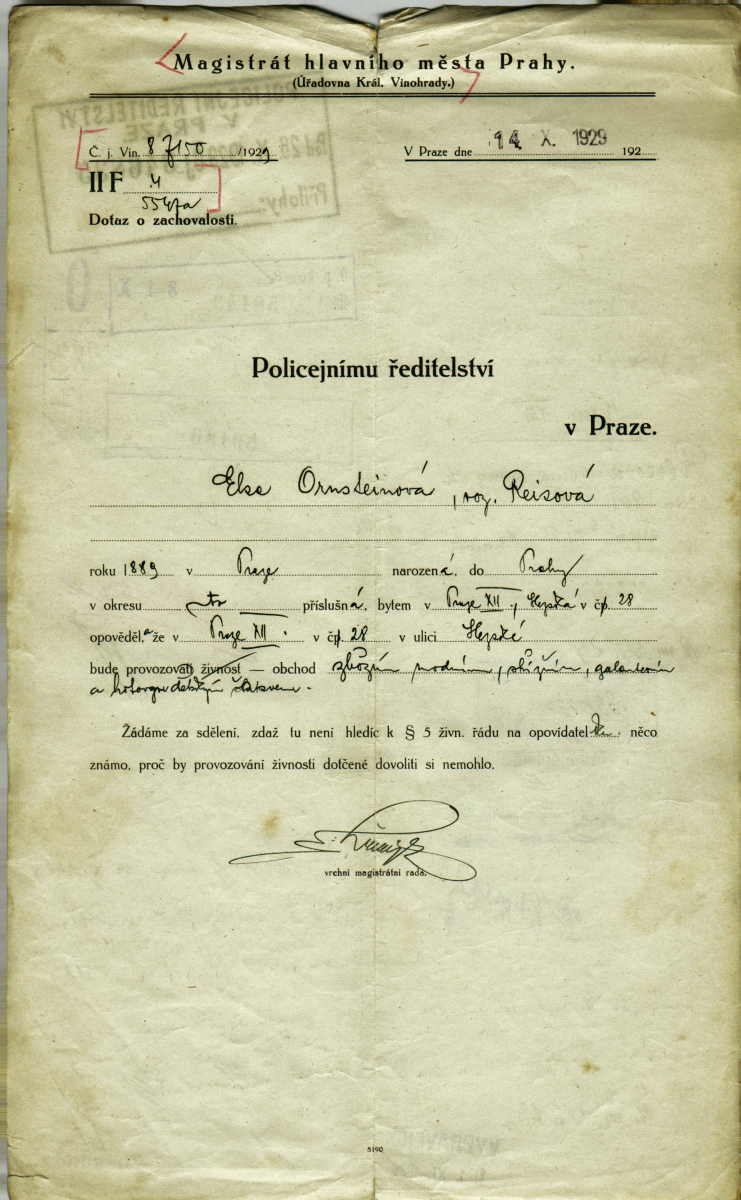 Magistrát hlavního města Prahy.
(Úřadovna Král. Vinohrady.)
Č. j. Vin. 87150/1929
V Praze dne 14. X. 1929 192
II F 4
554/a
Dotaz o zachovalosti.
Policejnímu ředitelství
v Praze.
Elsa Ornsteinová, roz. Reisová
roku 1889 v Praze narozená, do Prahy
v okresu příslušná, bytem v Praze XII., v čp. 28
opověděla, že v Praze XII. v čp. 28 v ulici
bude provozovati živnost — obchod zbožím modním, galanterním
a
Žádáme za sdělení, zdaž tu není hledíc k § 5 živn. řádu na opovídatel něco
známo, proč by provozování živnosti dotčené dovoliti si nemohlo.
vrchní magistrátní rada.
5190